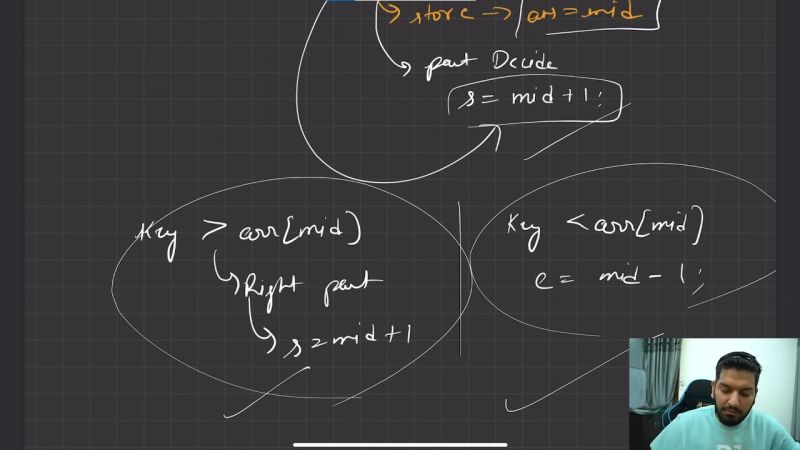 store → ans = mid
part Decide
s = mid + 1;
Key > arr[mid]
Right part
s = mid + 1
Key < arr[mid]
e = mid - 1;